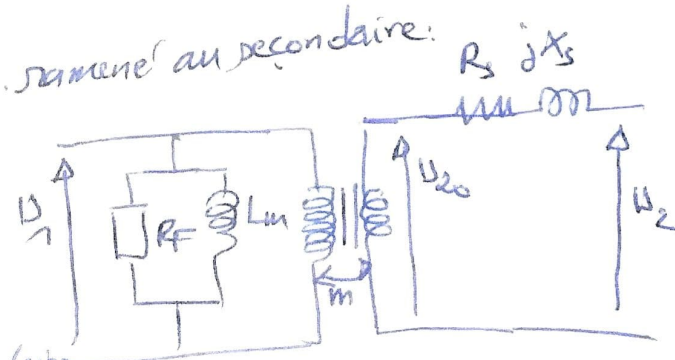 ramené au secondaire:
Rs jXs
U1
RF
Lm
m
U20
U2